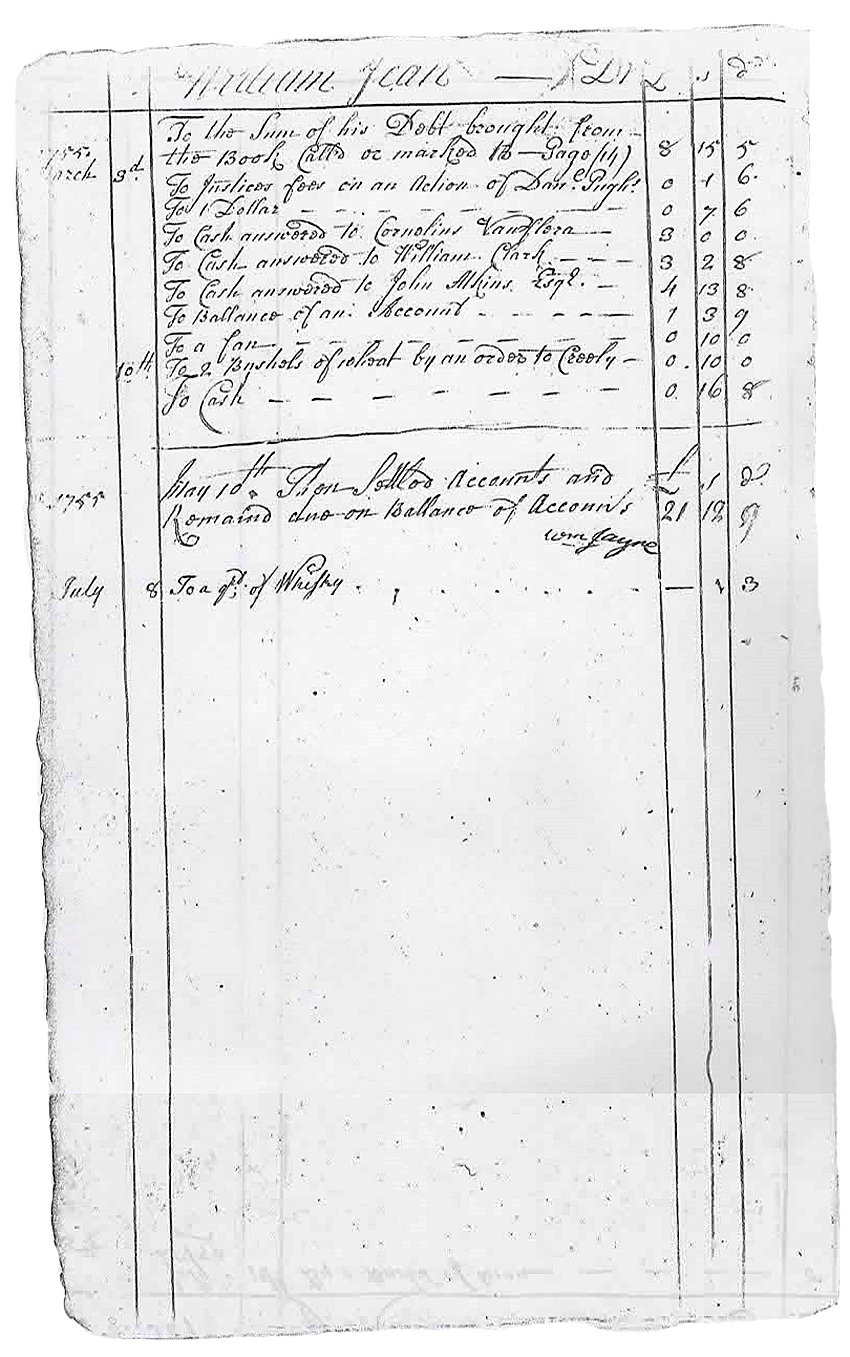 William Jean — Dr £ s d
To the Sum of his Debt brought from
1755 March 3d the Book Call'd or marked B — Page (14) 8 15 5
To Justices fees on an Action of Danl. Pughs 0 1 6
To 1 Dollar — — — — 0 7 6
To Cash answered to Cornelius Vanflera — 3 0 0
To Cash answered to William Clark — — — 3 2 8
To Cash answered to John Atkins Esqr. — 4 13 8
To Ballance of an Account - - - - 1 3 9
To a fan — — — — — 0 10 0
10th To 2 Bushels of wheat by an order to Creely — 0 10 0
To Cash — — — — — — 0 16 8
May 10th Then Settled Accounts and £ s d
1755 Remaind due on Ballance of Accounts 21 12 9
Wm Jayne
July 8 To a qt. of Whisky — 1 3